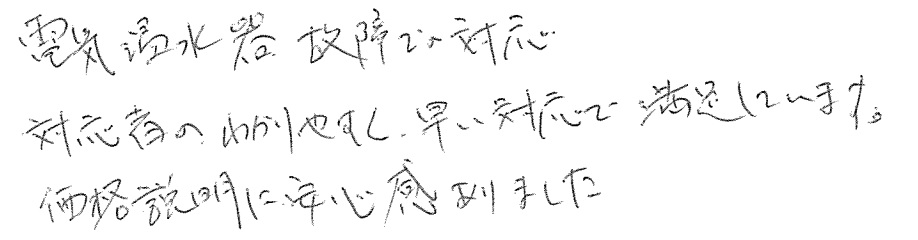 電気温水器 故障での対応
対応者の、わかりやすく、早い対応で 満足しています。
価格説明に安心感ありました